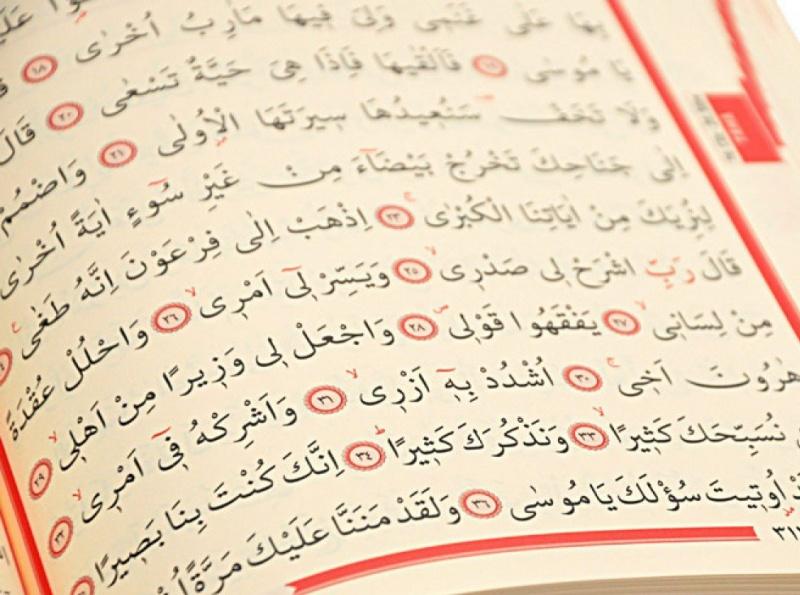 بِهَا عَلٰى غَنَمٖى وَلِىَ فٖيهَا مَاٰرِبُ اُخْرٰى ﴿١٨﴾
يَا مُوسٰى ﴿١٩﴾ فَاَلْقٰيهَا فَاِذَا هِىَ حَيَّةٌ تَسْعٰى ﴿٢٠﴾ قَالَ
وَلَا تَخَفْ سَنُعٖيدُهَا سٖيرَتَهَا الْاُولٰى ﴿٢١﴾ وَاضْمُمْ
اِلٰى جَنَاحِكَ تَخْرُجْ بَيْضَٓاءَ مِنْ غَيْرِ سُٓوءٍ اٰيَةً اُخْرٰى
لِنُرِيَكَ مِنْ اٰيَاتِنَا الْكُبْرٰى ﴿٢٣﴾ اِذْهَبْ اِلٰى فِرْعَوْنَ اِنَّهُ طَغٰى
قَالَ رَبِّ اشْرَحْ لٖى صَدْرٖى ﴿٢٥﴾ وَيَسِّرْ لٖٓى اَمْرٖى ﴿٢٦﴾ وَاحْلُلْ عُقْدَةً
مِنْ لِسَانٖى ﴿٢٧﴾ يَفْقَهُوا قَوْلٖى ﴿٢٨﴾ وَاجْعَلْ لٖى وَزٖيرًا مِنْ اَهْلٖى ﴿٢٩﴾
هٰرُونَ اَخٖى ﴿٣٠﴾ اُشْدُدْ بِهٖٓ اَزْرٖى ﴿٣١﴾ وَاَشْرِكْهُ فٖٓى اَمْرٖى ﴿٣٢﴾
نُسَبِّحَكَ كَثٖيرًا ﴿٣٣﴾ وَنَذْكُرَكَ كَثٖيرًا ﴿٣٤﴾ اِنَّكَ كُنْتَ بِنَا بَصٖيرًا
اُوتٖيتَ سُؤْلَكَ يَا مُوسٰى ﴿٣٦﴾ وَلَقَدْ مَنَنَّا عَلَيْكَ مَرَّةً